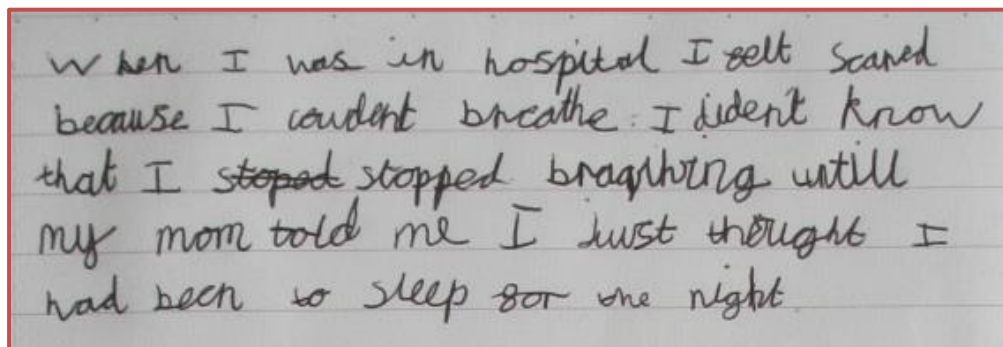 When I was in hospital I felt scared
because I coudent breathe. I dident know
that I stoped stopped braqthing untill
my mom told me I just thought I
had been to sleep for one night